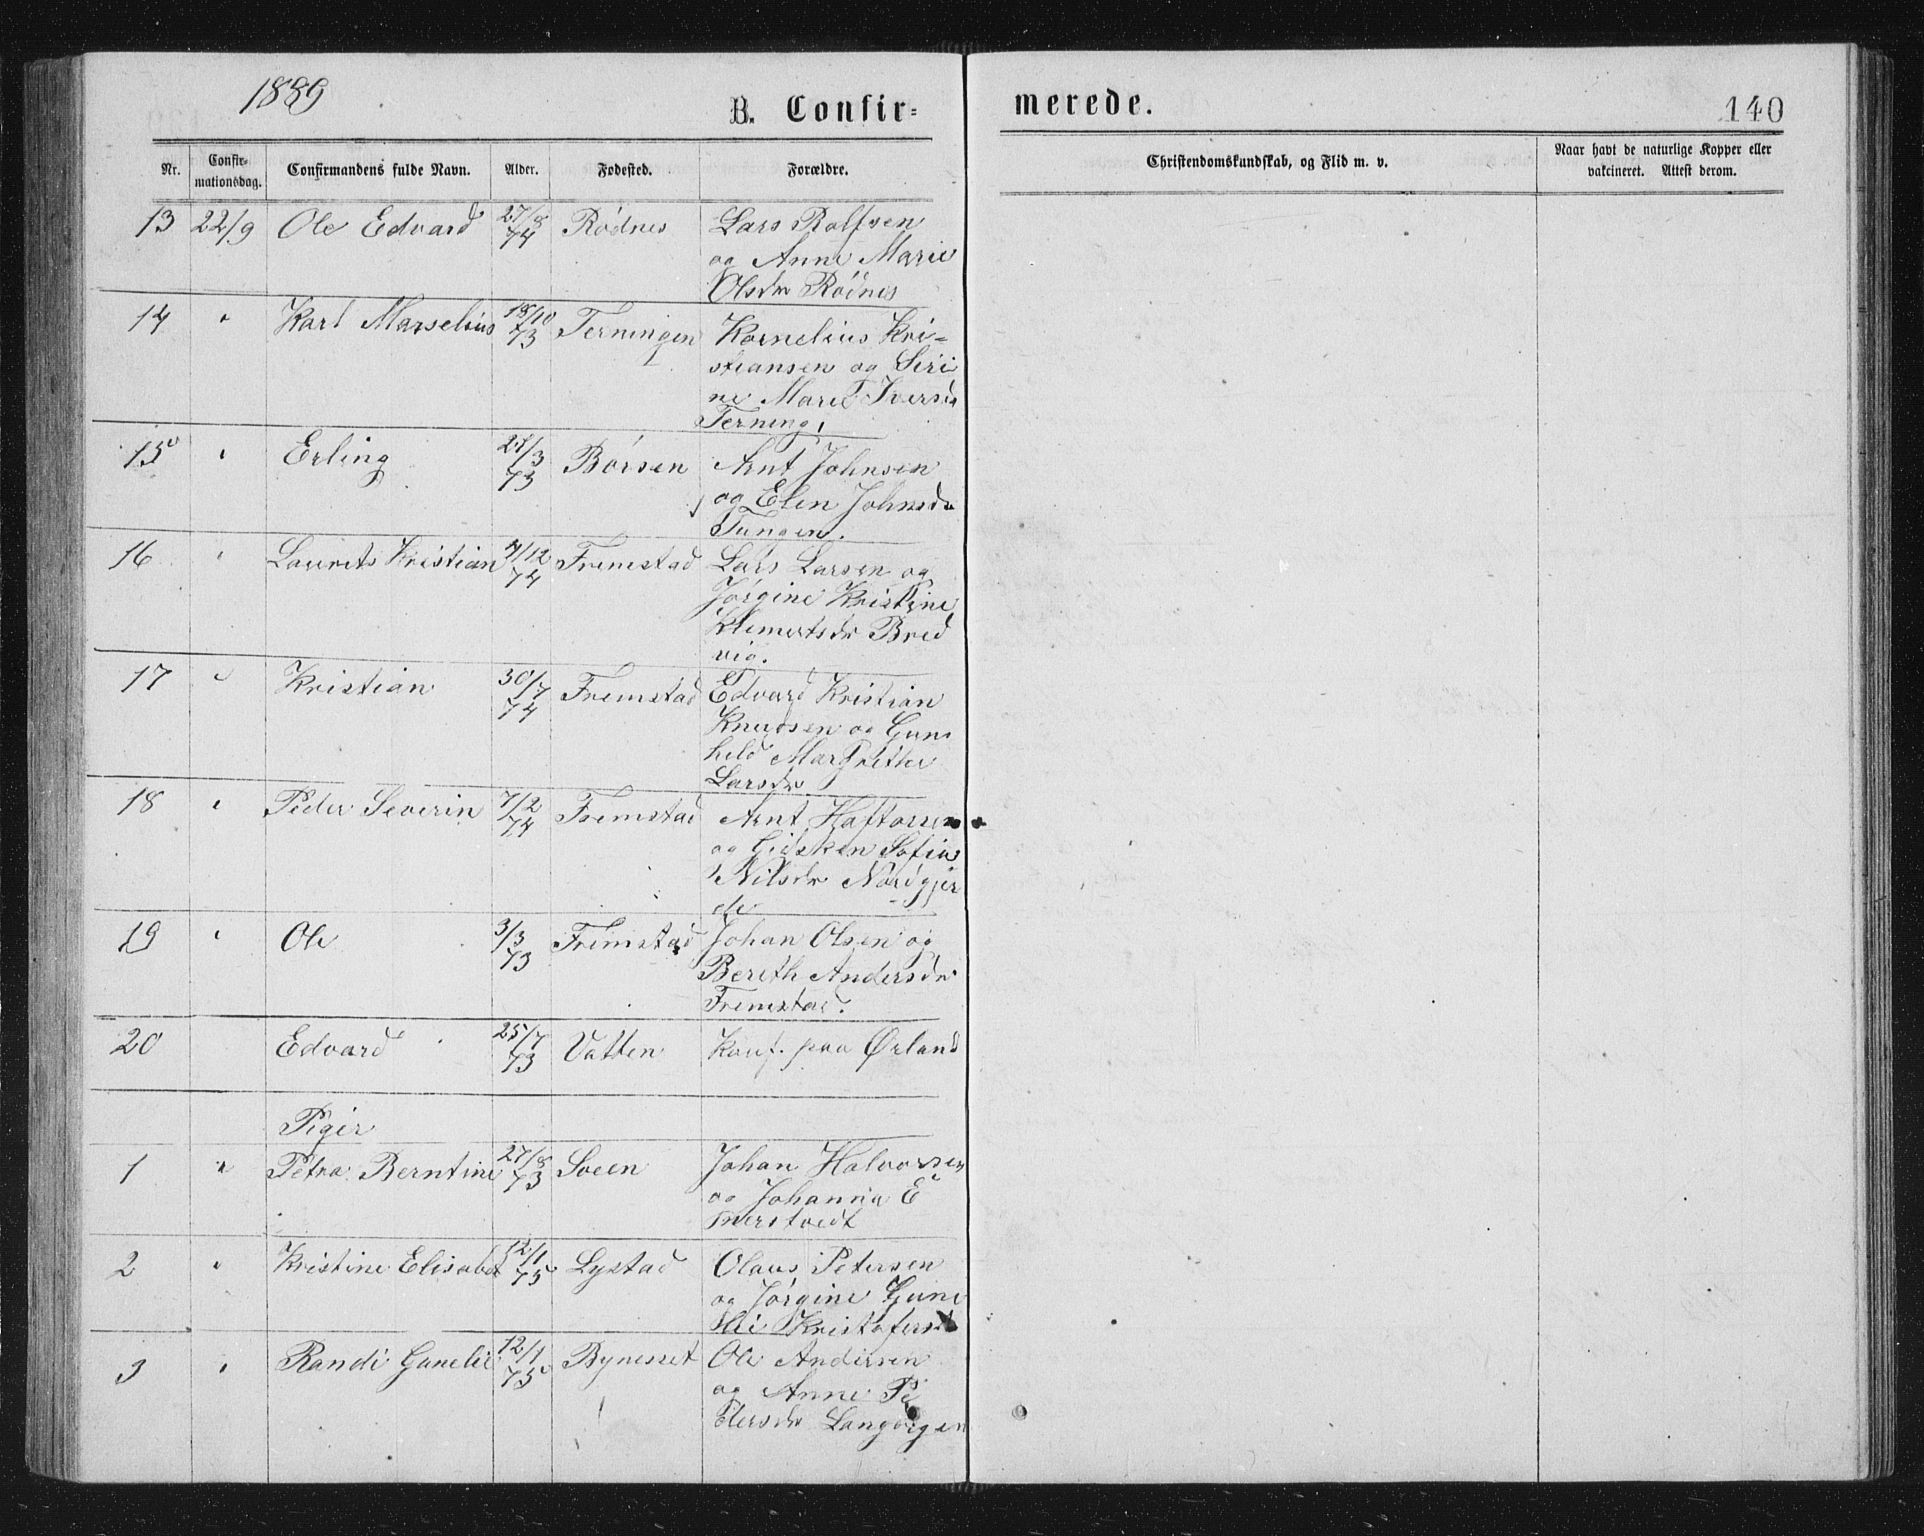 1889
B. Confir-
merede.
140
Nr.
Confir-
mationsdag.
Confirmandens fulde Navn.
Alder.
Fødested.
Forældre.
Christendomskundskab, og Flid m. v.
Naar havt de naturlige Kopper eller
vakcineret. Attest derom.
13 22/9 Ole Edvard 27/8 74 Rødnes Lars Rolfsen
og Anne Marie
Olsdr Rødnes
14 " Karl Marselius 18/10 73 Terningen Kornelius Kri-
stiansen og Seri
ne Marie Iversd
Terning.
15 " Erling 27/3 73 Börsen Arnt Johnsen
og Elen Johnsdr
Tungen.
16 " Laurits Kristian 7/12 74 Fremstad Lars Larsen og
Jørgine Kristine
Klemetsdr Bred
vig.
17 " Kristian 30/7 74 Fremstad Edvard Kristian
Knudsen og Gun
hild Margrethe
Larsdr
18 " Peder Severin 7/2 74 Fremstad Arnt Haftorsen
og Gidsken Sofia
Nilsdr Nordgjer
de
19 " Ole 3/3 73 Fremstad Johan Olsen og
Bereth Andersdr
Fremstad.
20 Edvard 25/7 73 Vatten Konf. paa Ørland
Piger
1 " Petra Berntine 27/8 73 Sveen Johan Halvorsen
og Johanna E
nerstvedt
2 " Kristine Elisabet 12/1 75 Lystad Olaus Petersen
og Jørgine Gune
Kristofersd
3 " Randi Gunelie 12/1 75 Bynesset Ole Andersen
og Anne Pe
dersdr Langvigen